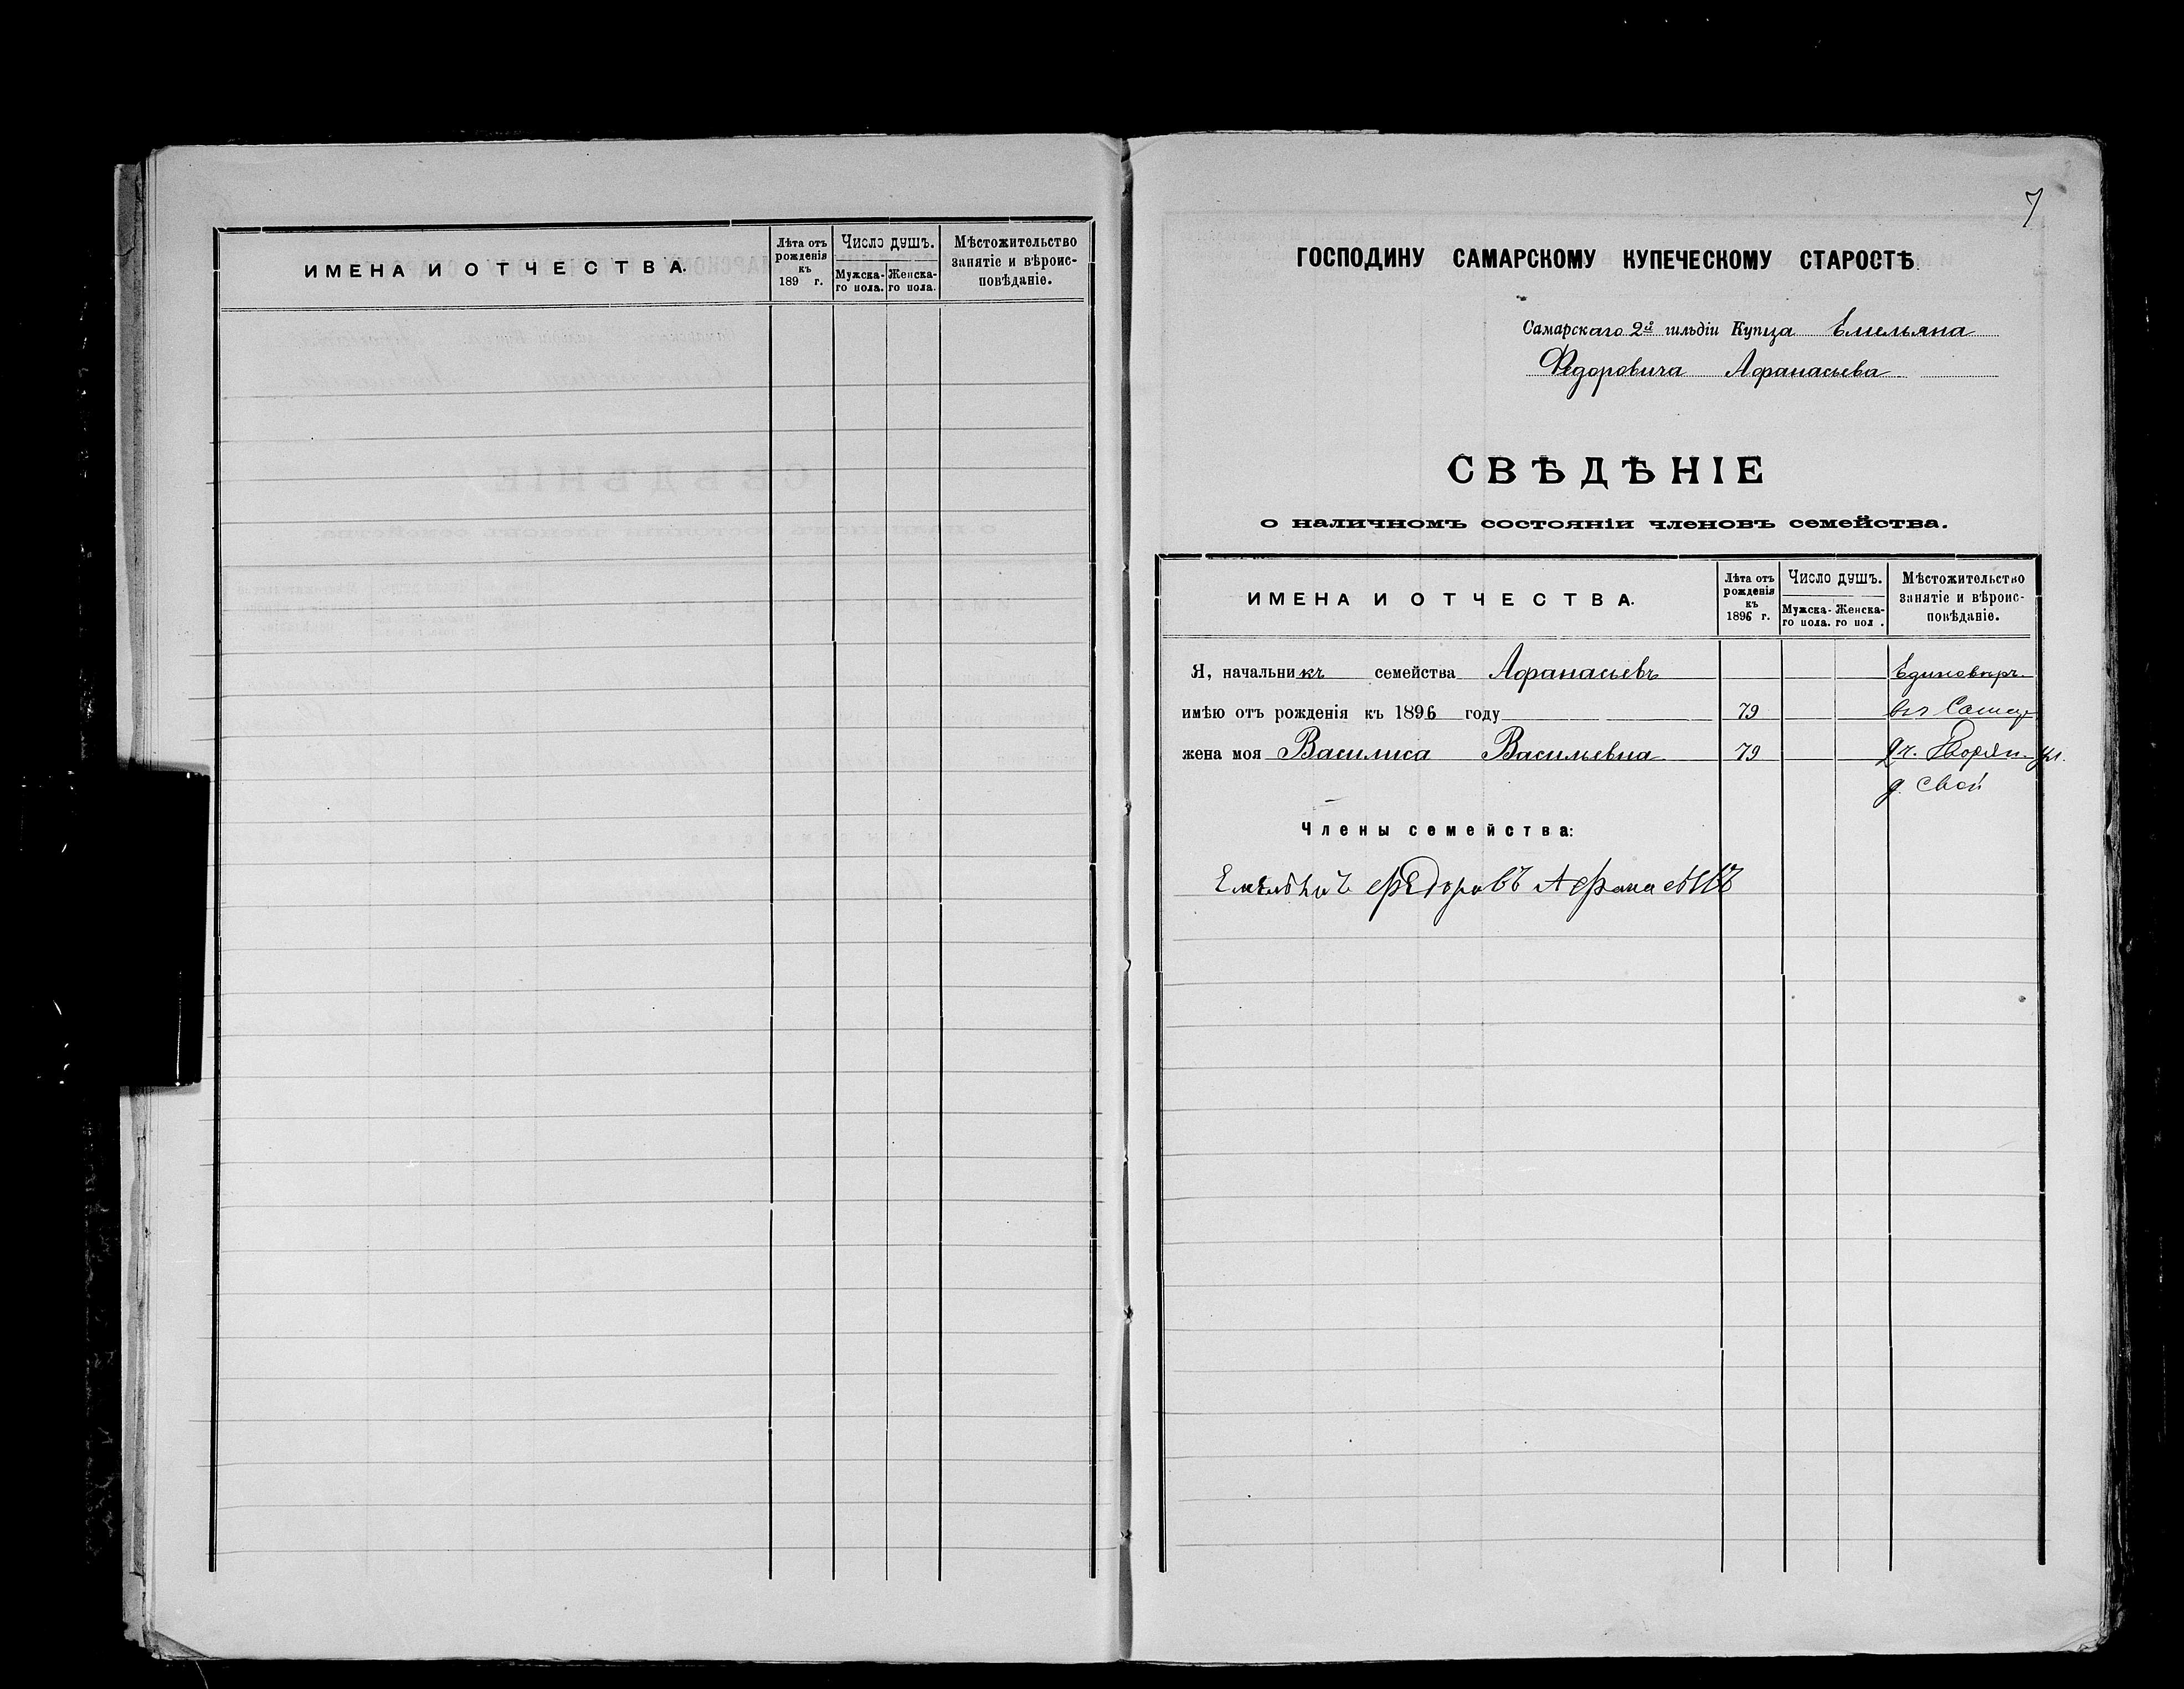 ИМЕНА И ОТЧЕСТВА.
Лѣта отъ рожденія къ 189 г.
Число душъ.
Мужска-го пола.
Женска-го пола.
Мѣстожительство занятіе и вѣроис-повѣданіе.
7
ГОСПОДИНУ САМАРСКОМУ КУПЕЧЕСКОМУ СТАРОСТѢ
Самарскаго 2й гильдіи Купца Емельяна
Федоровича Афанасьева
СВѢДѢНІЕ
о наличномъ состояніи членовъ семейства.
ИМЕНА И ОТЧЕСТВА.
Лѣта отъ рожденія къ 1896 г.
Число душъ.
Мужска-го пола.
Женска-го пол .
Мѣстожительство занятіе и вѣроис-повѣданіе.
Я, начальникъ семейства Афанасьевъ Единовѣр.
имѣю отъ рожденія къ 1896 году 79 въ
жена моя Василиса Васильевна 79 Дворян. ул.
д. свой
Члены семейства:
Федоровъ